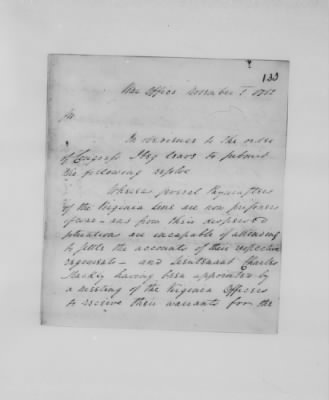 133
War Office November 1. 1782
Sir
In obedience to the order
of Congress I beg leave to submit
the following resolve
Whereas several Paymasters
of the Virginia line are now prisoners
of war and from their
situation are incapable of attending
to settle the accounts of their respective
regiments — and Lieutenant Charles
having been appointed by
a meeting of the Virginia Officers
to receive their warrants for the